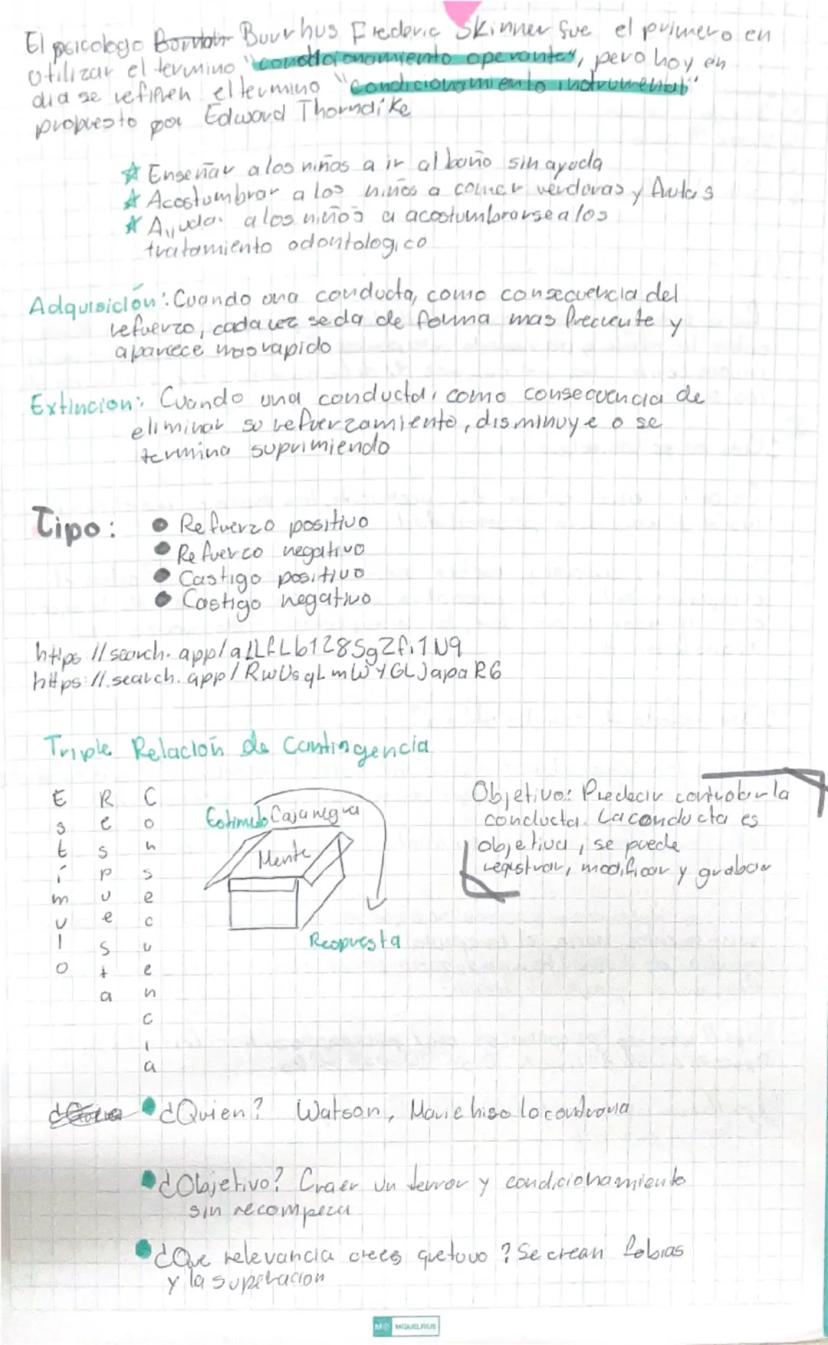 El psicologo Burrhus Frederic Skinner fue el primero en
utilizar el termino "condicionamiento operante", pero hoy en
dia se refieren el termino "condicionamiento instrumental"
propuesto por Edward Thorndike
Enseñar a los niños a ir al baño sin ayuda
Acostumbrar a los niños a comer verduras y frutas
Ayudar a los niños a acostumbrarse a los
tratamiento odontologico
Adquisición: Cuando una conducta, como consecuencia del
refuerzo, cada vez se da de forma mas frecuente y
aparece mas rapido
Extincion: Cuando una conducta, como consecuencia de
eliminar su reforzamiento, disminuye o se
termina suprimiendo
Tipo:
Refuerzo positivo
Refuerzo negativo
Castigo positivo
Castigo negativo
Triple Relación de Contingencia
Estímulo
Respuesta
Consecuencia
Estimulo Caja negra
Mente
Respuesta
Objetivo: Predecir controlar la
conducta. La conducta es
objetiva, se puede
registrar, modificar y grabar
¿Quien? Watson, hiso lo contrario
¿Objetivo? Craer un terror y condicionamiento
sin
¿Que relevancia crees que tuvo? Se crean fobias
y la superacion
MIQUELRIUS